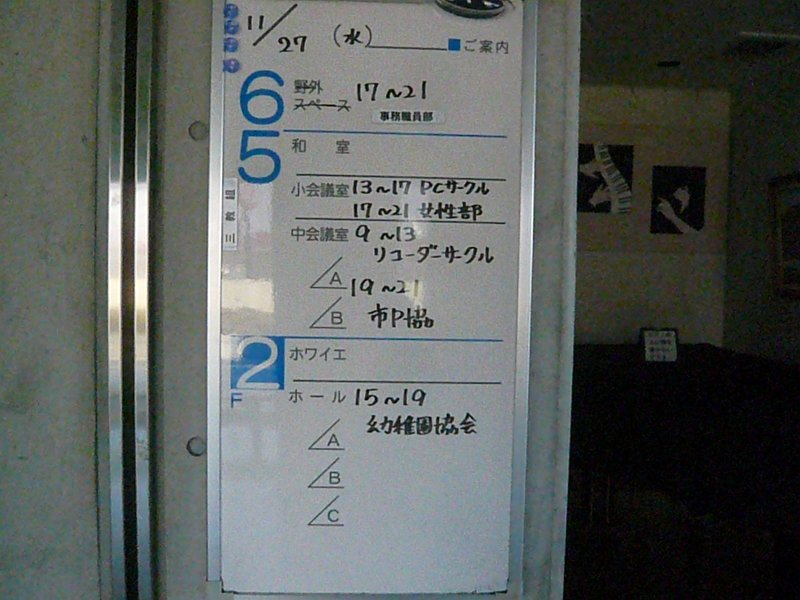 11/27 (水) ■ご案内
6 野外スペース 17~21
事務職員部
5 和室
三教組
小会議室 13~17 PCサークル
17~21 女性部
中会議室 9~13
リコーダーサークル
A 19~21
B 市P協
2F ホワイエ
ホール 15~19
幼稚園協会
A
B
C